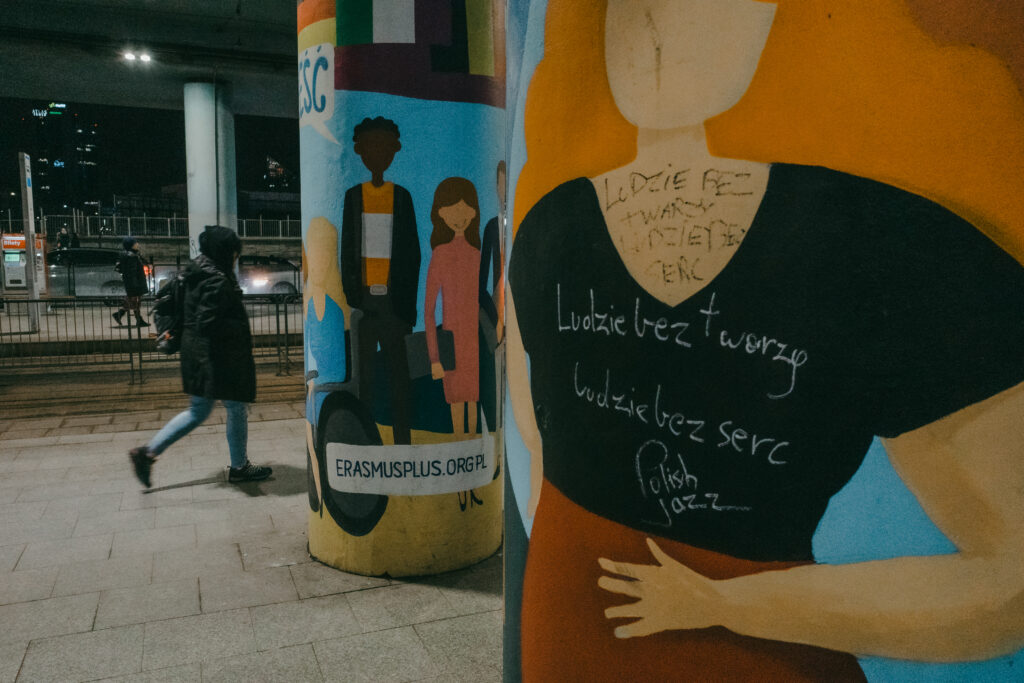 EŚĆ
Bilety
ERASMUSPLUS.ORG.PL
LUDZIE BEZ
TWARZY
LUDZIE BEZ
SERC
Ludzie bez tworzy
Ludzie bez serc
Polish
jazz